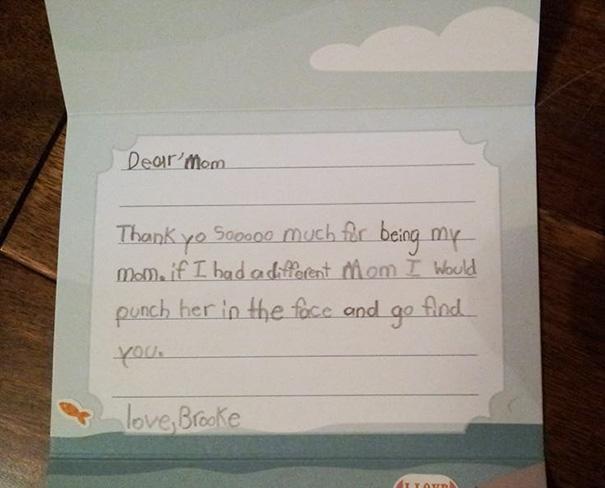 Dear Mom
Thank yo Sooooo much for being my
mom. if I had a different Mom I Would
punch her in the face and go find
you.
love, Brooke
I LOVE